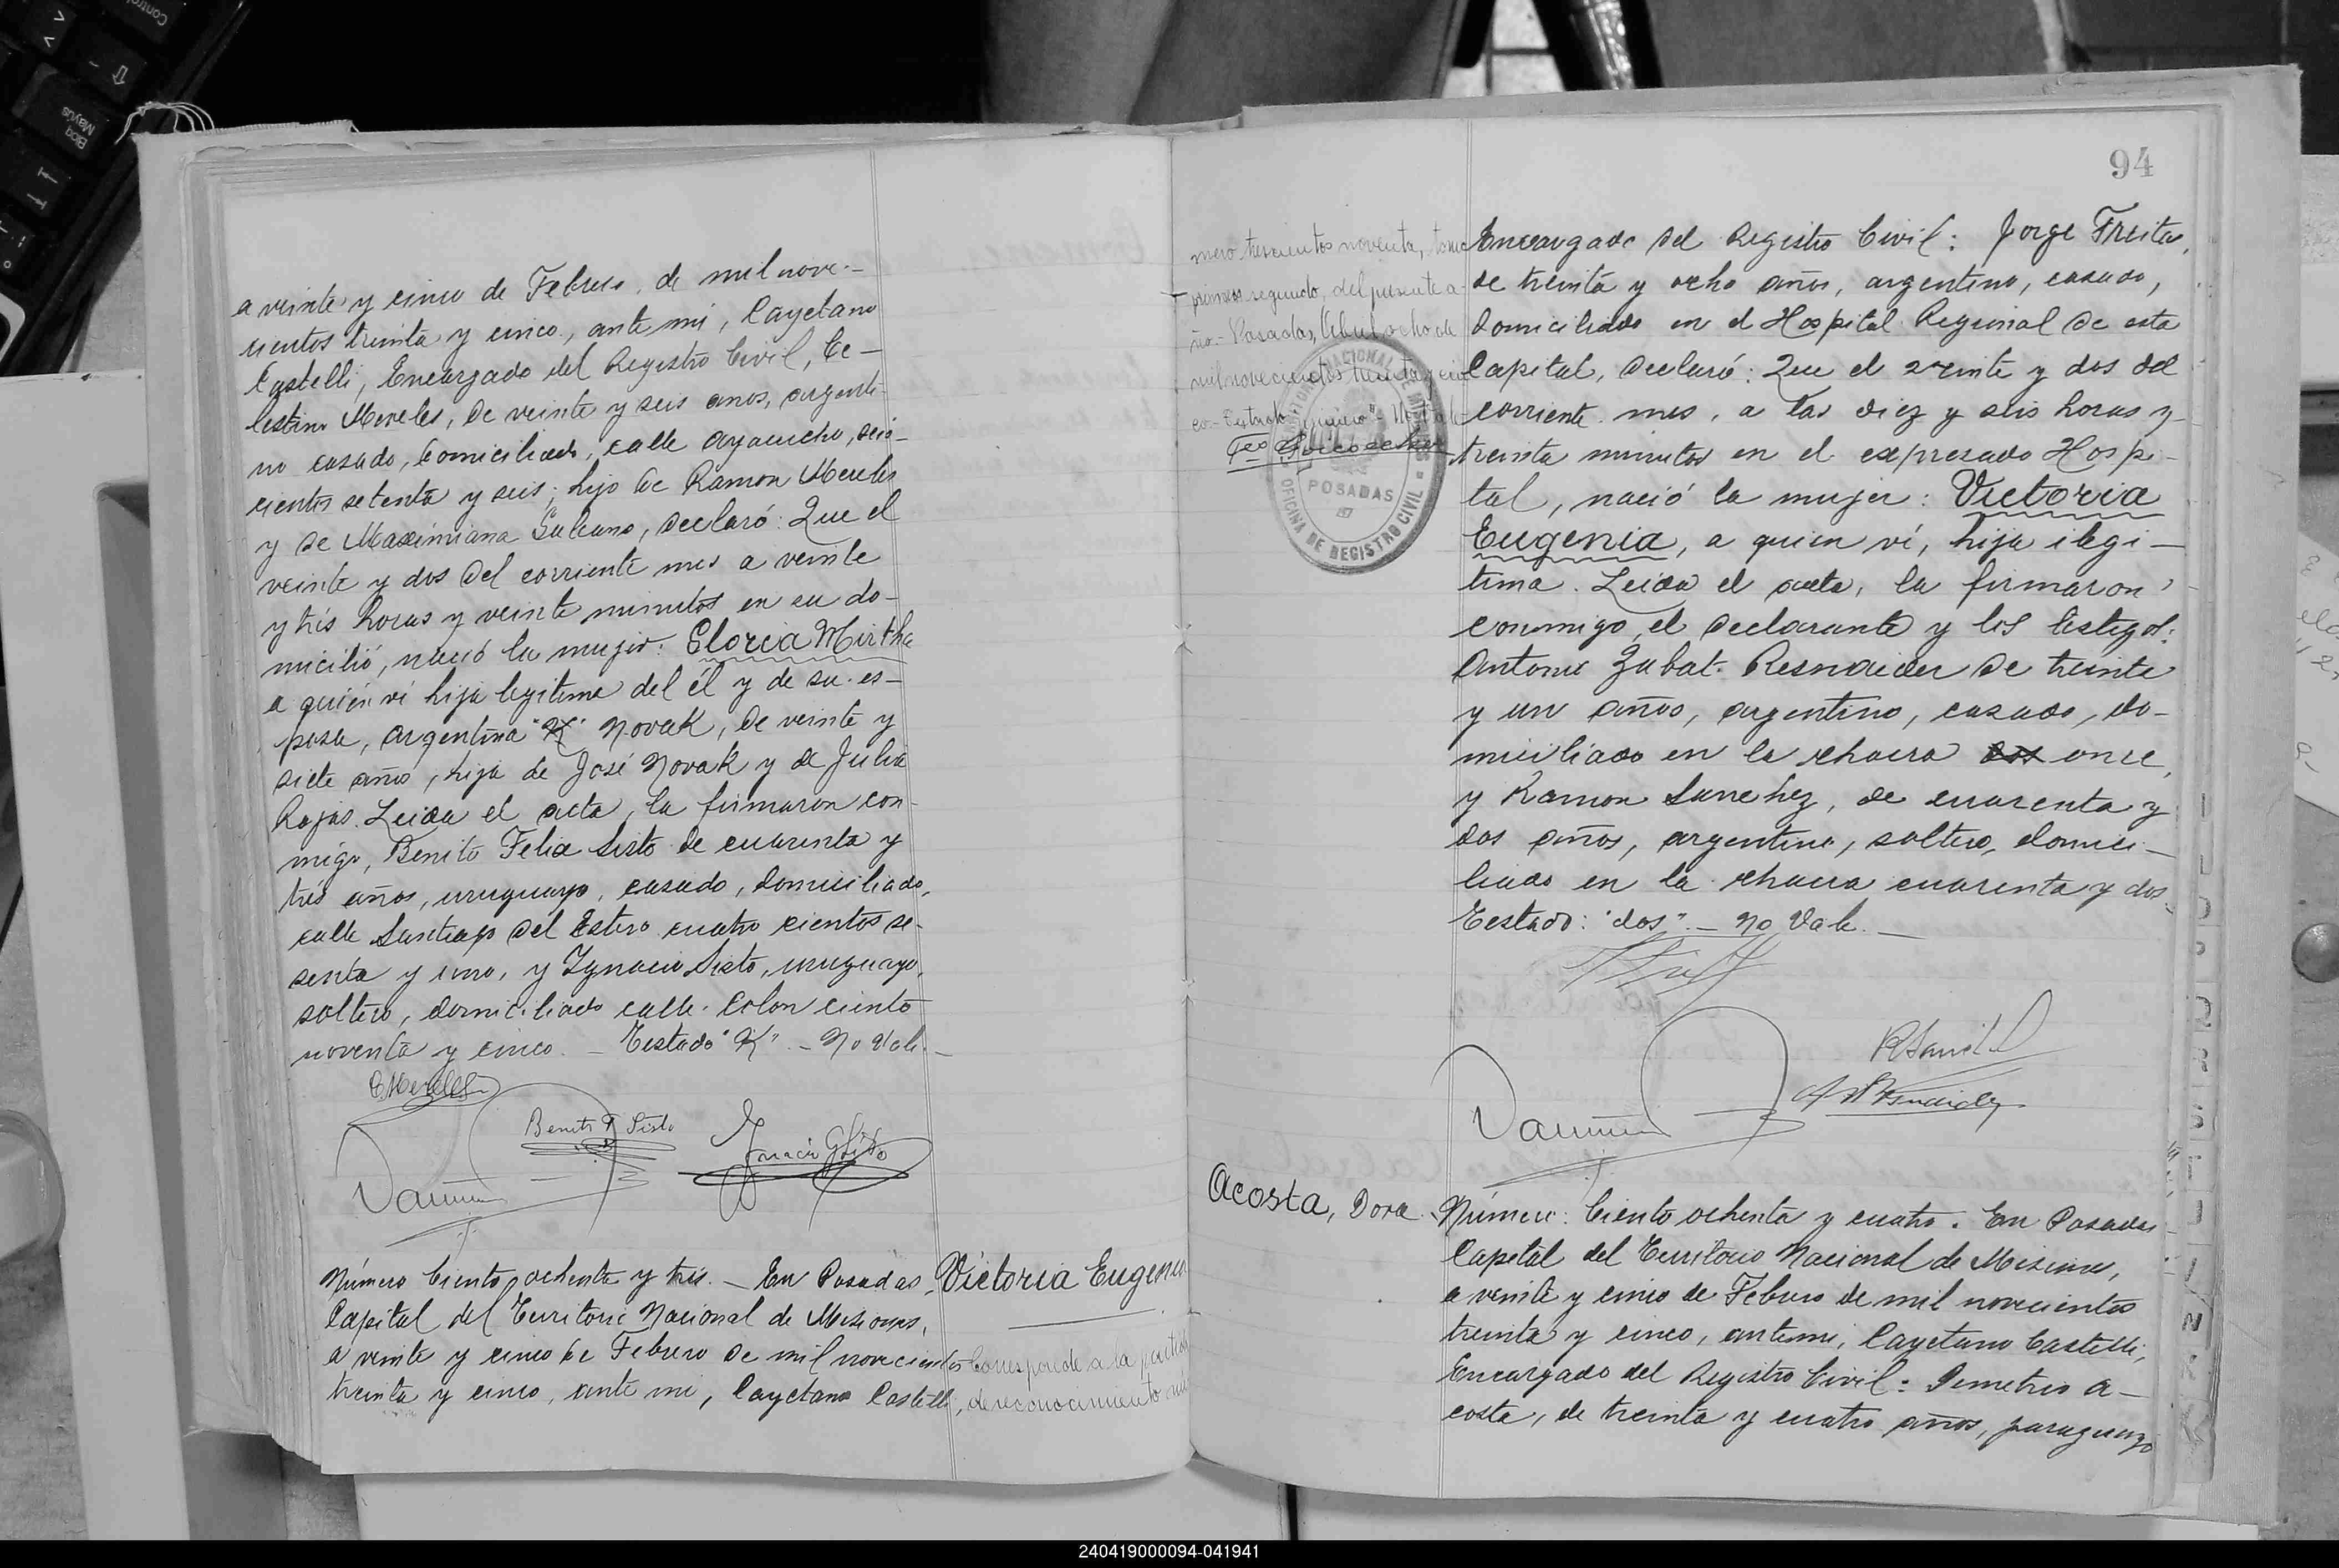 a veinte y cinco de Febrero, de mil nove-
cientos treinta y cinco, ante mi, Cayetano
Castelli, Encargado del Registro Civil, Ce-
lestino Mereles, de veinte y seis años, argenti-
no casado, domiciliado, calle Ayacucho, seis-
cientos setenta y seis; hijo de Ramon Mereles
y de Maximiana Galeano, declaró: Que el
veinte y dos del corriente mes a veinte
y trés horas y veinte minutos en su do-
micilió, nació la mujer: Gloria Mirtha
a quién ví hija legitima del él y de su es-
posa, argentina "K" Novak, de veinte y
siete años, hija de José Novak y de Julia
Rojas. Leida el acta, la firmaron con-
migo, Benito Felix Sisto de cuarenta y
trés años, uruguayo, casado, domiciliado,
calle Santiago del Estero cuatro cientos se-
senta y uno, y Ignacio Sisto, uruguayo,
soltero, domiciliado calle Colon ciento
noventa y cinco. - Testado "K" - No Vale. -
C Mereles
Benito F Sisto
Ignacio G Sisto
Número Ciento ochenta y trés. - En Posadas,
Capital del Territorio Nacional de Misiones,
a veinte y cinco de Febrero de mil novecientos
treinta y cinco, ante mi, Cayetano Castelli,
Victoria Eugenia
Corresponde a la partida
de reconocimiento nú
94
mero trescientos noventa, tomo
primero segundo, del presente a-
ño - Posadas, Abril ocho de
mil novecientos treinta y cin
co - Testado "primero" - No Vale
TERRITORIO NACIONAL DE MISIONES
POSADAS
OFICINA DE REGISTRO CIVIL
Encargado del Registro Civil: Jorge Freita,
de treinta y ocho años, argentino, casado,
domiciliado en el Hospital Regional de esta
Capital, declaró: Que el veinte y dos del
corriente mes, a las diez y seis horas y
treinta minutos en el expresado Hospi-
tal, nació la mujer: Victoria
Eugenia, a quien ví, hija ilegi-
tima. Leida el acta, la firmaron
conmigo, el declarante y los testigos:
Antonio Zubat. Resnaider de treinta
y un años, argentino, casado, do-
miciliado en la chacra dos once,
y Ramon Sanchez, de cuarenta y
dos años, argentino, soltero, domici-
liado en la chacra cuarenta y dos.
Testado: "dos" - No Vale. -
Acosta, Dora
Número: Ciento ochenta y cuatro. En Posadas
Capital del Territorio Nacional de Misiones,
a veinte y cinco de Febrero de mil novecientos
treinta y cinco, ante mi, Cayetano Castelli,
Encargado del Registro Civil: Demetrio A-
costa, de treinta y cuatro años, paraguayo
240419000094-041941